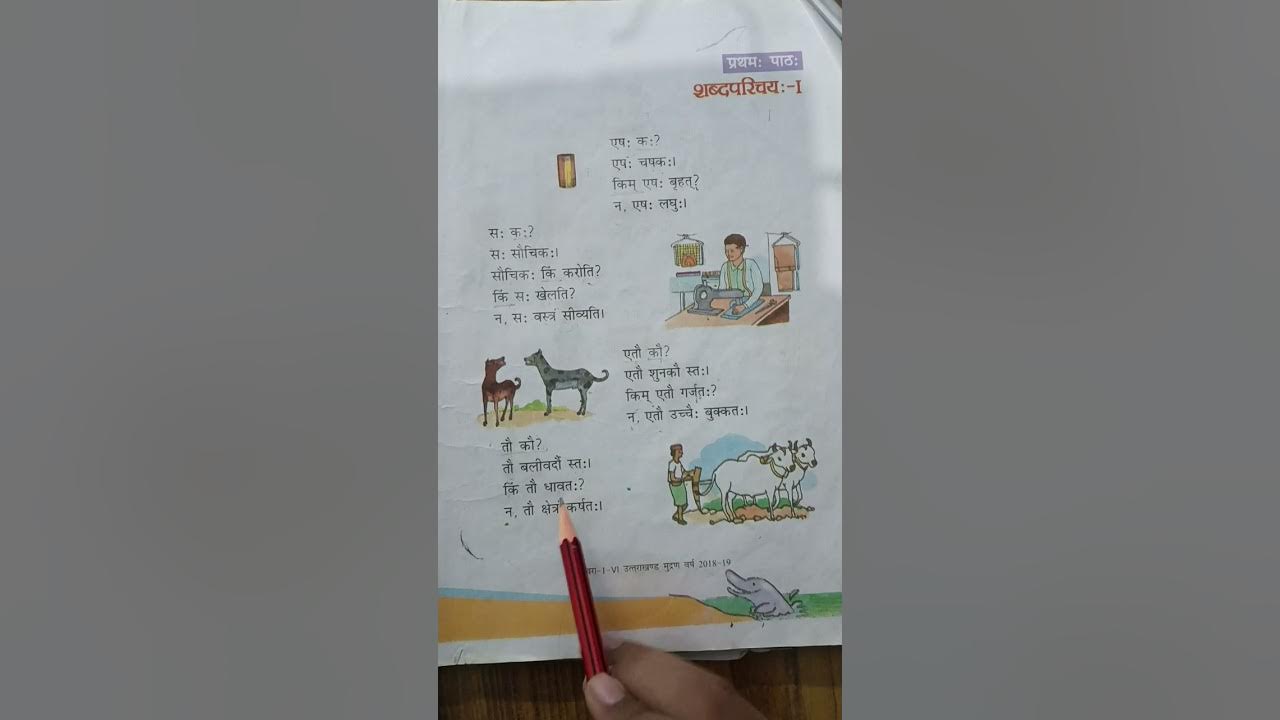 प्रथमः पाठः
शब्दपरिचयः-I
एषः कः?
एषः चषकः।
किम् एषः बृहत्?
न, एषः लघुः।
सः कः?
सः सौचिकः।
सौचिकः किं करोति?
किं सः खेलति?
न, सः वस्त्रं सीव्यति।
एतौ कौ?
एतौ शुनकौ स्तः।
किम् एतौ गर्जतः?
न, एतौ उच्चैः बुक्कतः।
तौ कौ?
तौ बलीवर्दौ स्तः।
किं तौ धावतः?
न, तौ क्षेत्रं कर्षतः।
-I-VI उत्तराखण्ड मुद्रण वर्ष 2018-19